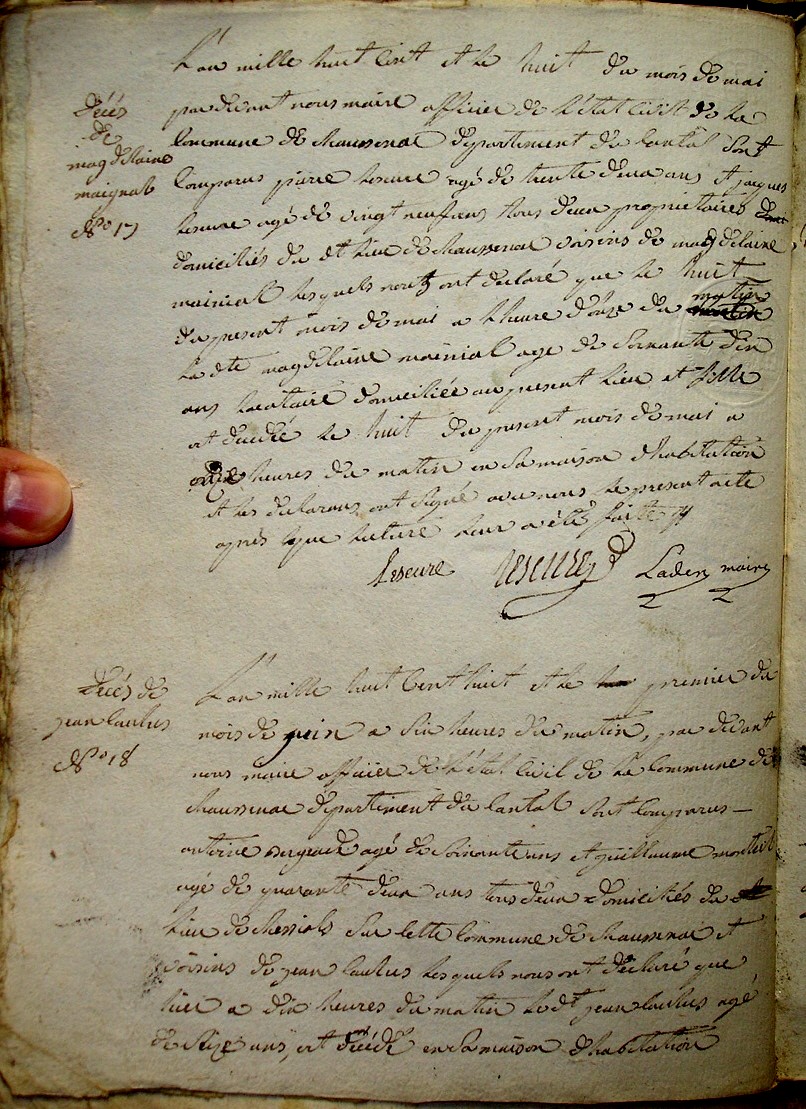 L'an mille huit cent et le huit du mois de mai
décés
de
magdelaine
maignal
N.o 17
par devant nous maire officier de l'état civil de la
Commune de chaussenac département du Cantal sont
Comparus pierre leseure agé de trente deux ans et jacques
leseure agé de vingt neuf ans tous deux proprietaires
domiciliés du dt lieu de chaussenac voisins de magdelaine
mainial lesquels nous ont declaré que le huit
du present mois de mai a l'heure d'onze du matin
la dte magdelaine mainial age de soixante dix
ans locataire domiciliée au present lieu et fille
est decedée le huit du present mois de mai a
onze heures du matin en sa maison d'habitation
et les declarans ont signé avec nous le present acte
aprés que lecture leur a été faite
leseure leseure Laden maire
décés de
jean Caulus
N.o 18
L'an mille huit Cent huit et le premier du
mois de juin a six heures du matin, par devant
nous maire officier de l'état Civil de la Commune de
chaussenac département du Cantal sont Comparus
antoine agé de soixante ans et guillaume
agé de quarante deux ans tous deux domiciliés du
lieu de sur Cette Commune de chaussenac et
voisins de jean Caulus lesquels nous ont déclaré que
hier a dix heures du matin le dt jean Caulus agé
de seize ans, est décédé en sa maison d'habitation